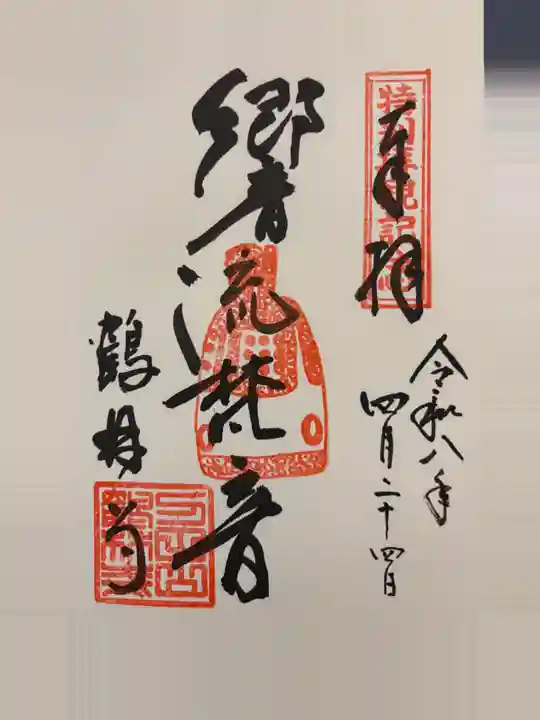 奉拝
特別拝観記念
令和八年
四月二十四日
響流梵音
鶴林寺